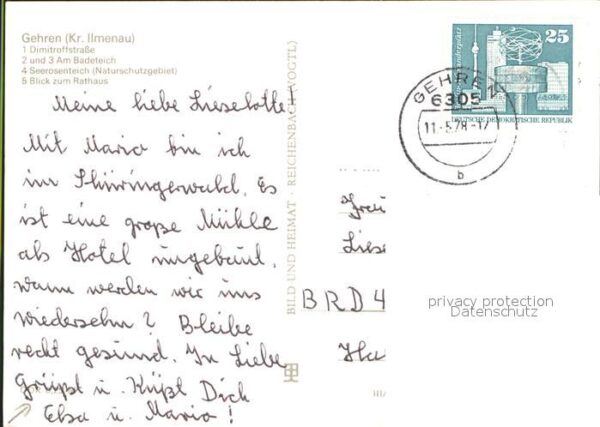 Gehren (Kr. Ilmenau)
1 Dimitroffstraße
2 und 3 Am Badeteich
4 Seerosenteich (Naturschutzgebiet)
5 Blick zum Rathaus
Meine liebe Lieselotte!
Mit Mario bin ich
im Thüringerwald. Es
ist eine große Mühle
als Hotel umgebaut.
wann werden wir uns
wiedersehn? Bleibe
recht gesund. In Liebe
Grüßt u. Küßt Dich
Elsa u. Mario!
BILD UND HEIMAT · REICHENBACH (VOGTL)
25
DEUTSCHE DEMOKRATISCHE REPUBLIK
GEHREN
6305
11.-5.78.-17
b
Frau
Liese
BRD 4
Ha
privacy protection
Datenschutz